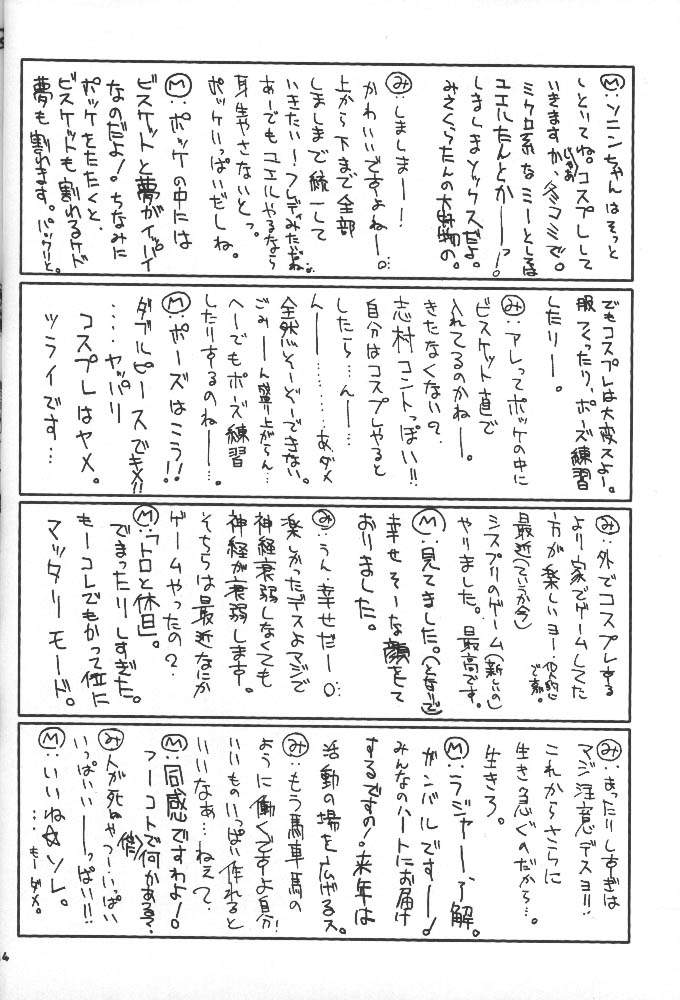 Ⓜ:ソニンちゃんはそっと
しといてね。コスプレして
じゃあ
いきますか、冬コミで。
ミクロ系なミーとしては
ユエルたんとかーっ!
しましまソックスだよ。
みさくらたんの大好物の。
み:しましまー!
かわいいですよねー。
上から下まで全部
しましまで統一して
いきたいー!フレディみたいだね…
あーでもユエルやるなら
身生やさないとっ。
ポッケいっぱいだしね。
Ⓜ:ポッケの中には
ビスケットと夢がイッパイ
なのだよ!ちなみに
ポッケをたたくと、
ビスケットも割れるケド
夢も割れます。パックリと。
でもコスプレは大変スよー。
服つくったり、ポーズ練習
したりー。
み:アレってポッケの中に
ビスケット直で
入れてるのかねー。
きたなくない?
志村コントっぽい!!
自分はコスプレやると
したら…んー…
んー………あ、ダメ
全然そーぞーできない。
ごみーん盛り上がらん…
へーでもポーズ練習
したりするのねー…。
Ⓜ:ポーズはこう!!
ダブルピースでキメ!!
……ヤッパリ
コスプレはヤメ。
ツライです…
み:外でコスプレする
より家でゲームしてた
方が楽しいヨー個人的に
ですが。
最近(ていうか今)
シスプリのゲーム(新しいの)
やりました。最高です。
Ⓜ:見てました。(となりで)
幸せそーな顔をして
おりました。
み:うん、幸せだー。
楽しかったデスよマジで
神経衰弱しなくても
神経が衰弱します。
そちらは最近なにか
ゲームやったの?
Ⓜ:「トロと休日」。
でまったりしすぎた。
もーコレでもかって位に
マッタリモード。
み:まったりしすぎは
マジ注意デスヨ!!
これからさらに
生き急ぐのだから…。
生きろ。
Ⓜ:ラジャー、了解。
ガンバルですー!
みんなのハートにお届け
するですの!来年は
活動の場を広げるス。
み:もう馬車馬の
ように働くですよ自分!
いいものいっぱい作れると
いいなぁ…ねえて、
Ⓜ:同感ですわよ!
つーコトで何かある?
み:人が死ぬやつーいっぱい
いっぱいいーっぱい!!
Ⓜ:いいね☆ソレ。
…もーダメ。
4